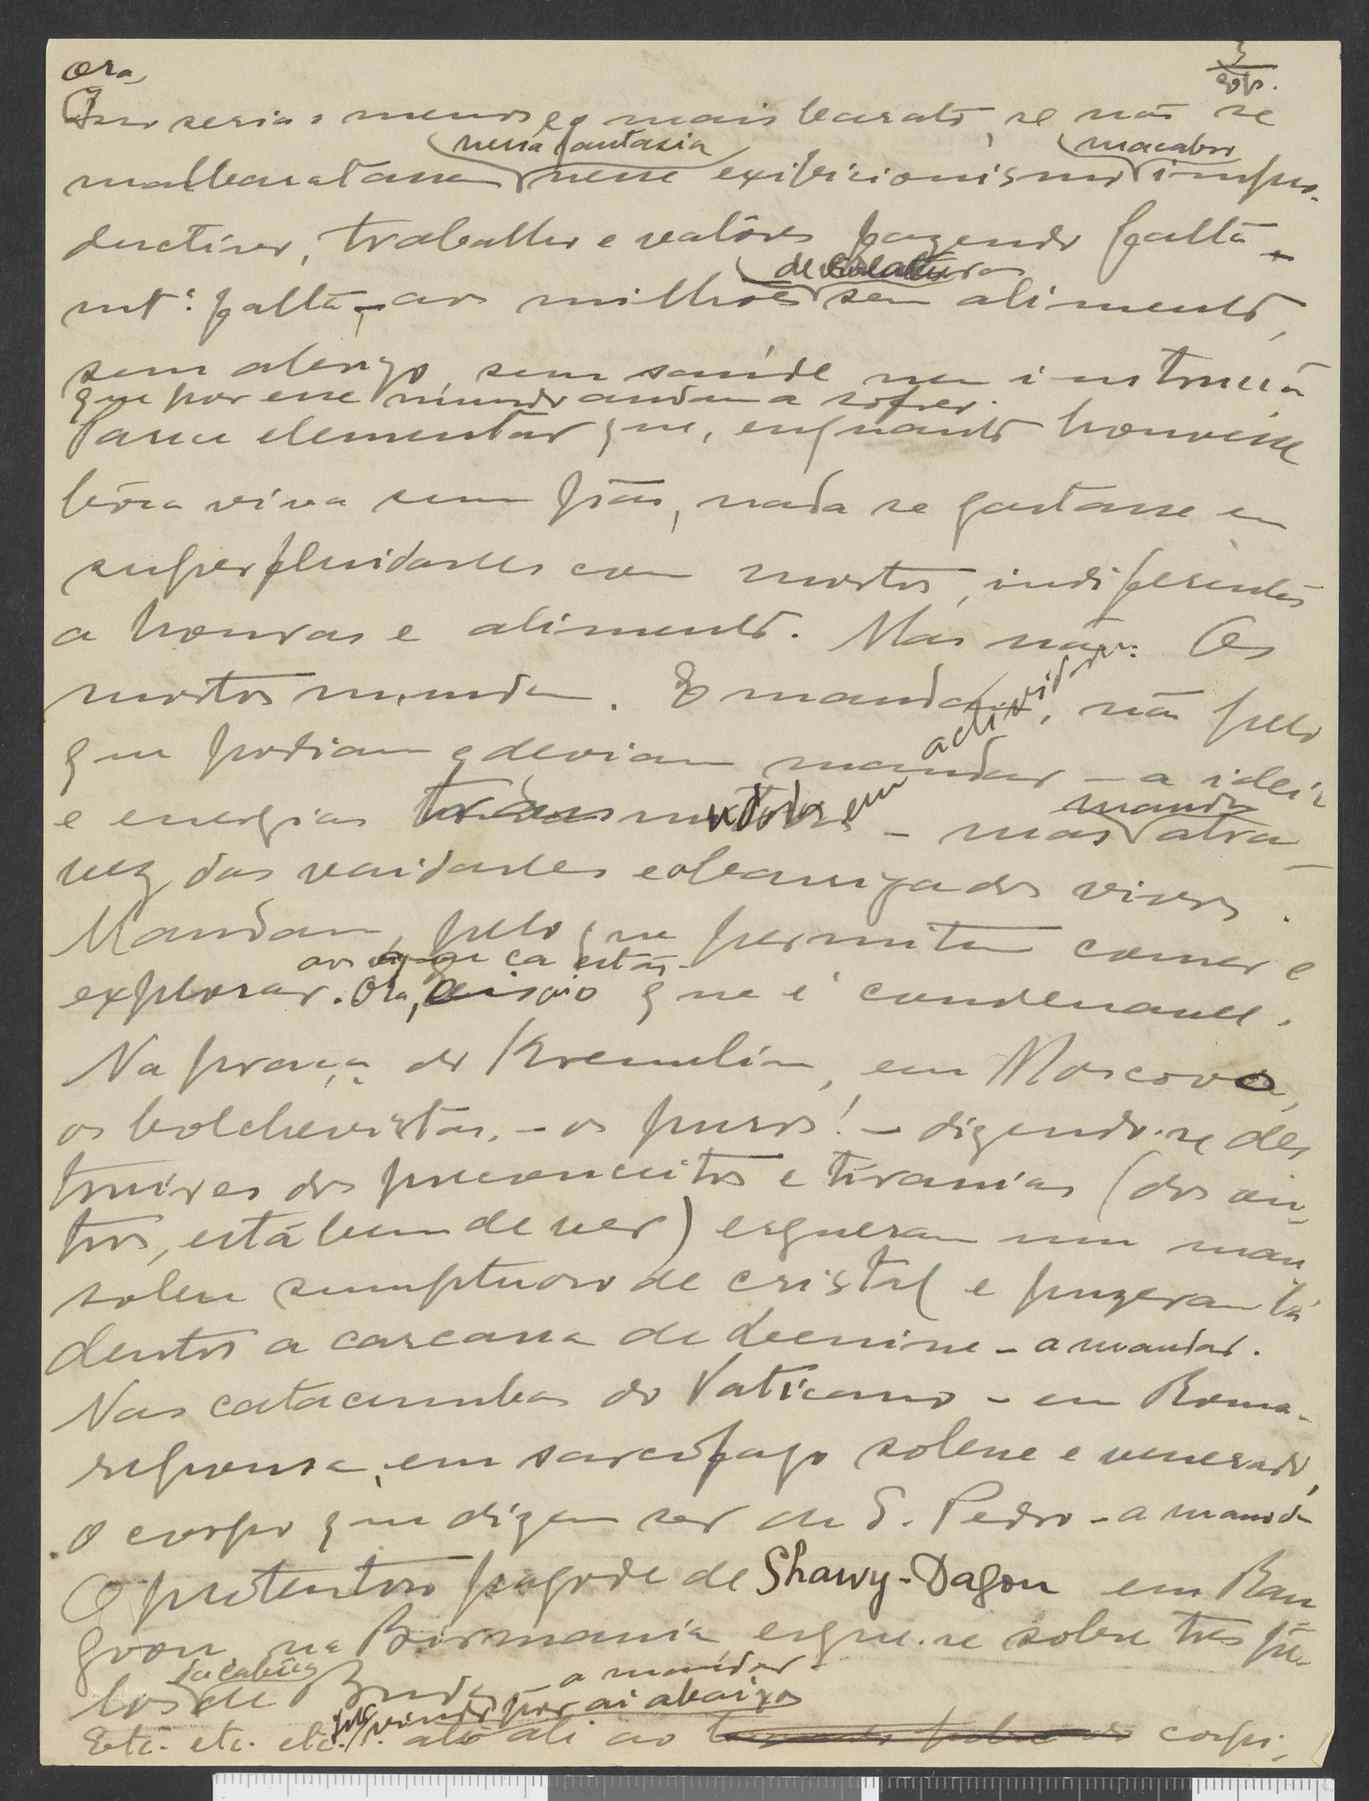 Ora,
3
Isso seria o menos e o mais barato, se não se
nessa fantasia macabro
malbaratasse nesse exibicionismo impro-
ductivo, trabalho e valôres fazendo falta
mtª falta, aos milhões de criaturas sem alimento,
sem abrigo, sem saúde nem instrução
que por esse mundo andam a sofrer.
Parece elementar que, enquanto houvesse
bôca viva sem pão, nada se gastasse em
superfluidades com mortos, indiferentes
a honras e alimento. Mas não: Os
mortos mandam. E mandam, não pelo
que podiam e deviam mandar – a ideia
e energias transmutadas em actividades – mas mandam atra-
vez das vaidades e cobança dos vivos.
Mandam, pelo que permitem comer e
aos que cá estão
explorar. Ora, isso é que é condenavel.
Na praça do Kremulin, em Moscovo,
os bolchevistas, – os puros! – dizendo-se des
truires dos preconceitos e tiranias (dos ou-
tros, está bem de ver) ergueram um mau
soleu sumptuoso de cristal e puzeram lá
dentro a carcassa de Lenine – a mandar.
Nas catacumbas do Vaticano – em Roma –
repousa, em sarcófago solene e venerado,
o corpo que dizem ser de S. Pedro – a mandar
O pretentoso pagode de Shawy-Dagon em Ran
goon na Birmania ergue-se sobre tres pê-
da cabeça a mandar.
los de Buda
por vindo por ai abaixo
Etc. etc. etc. até ali ao corpi-